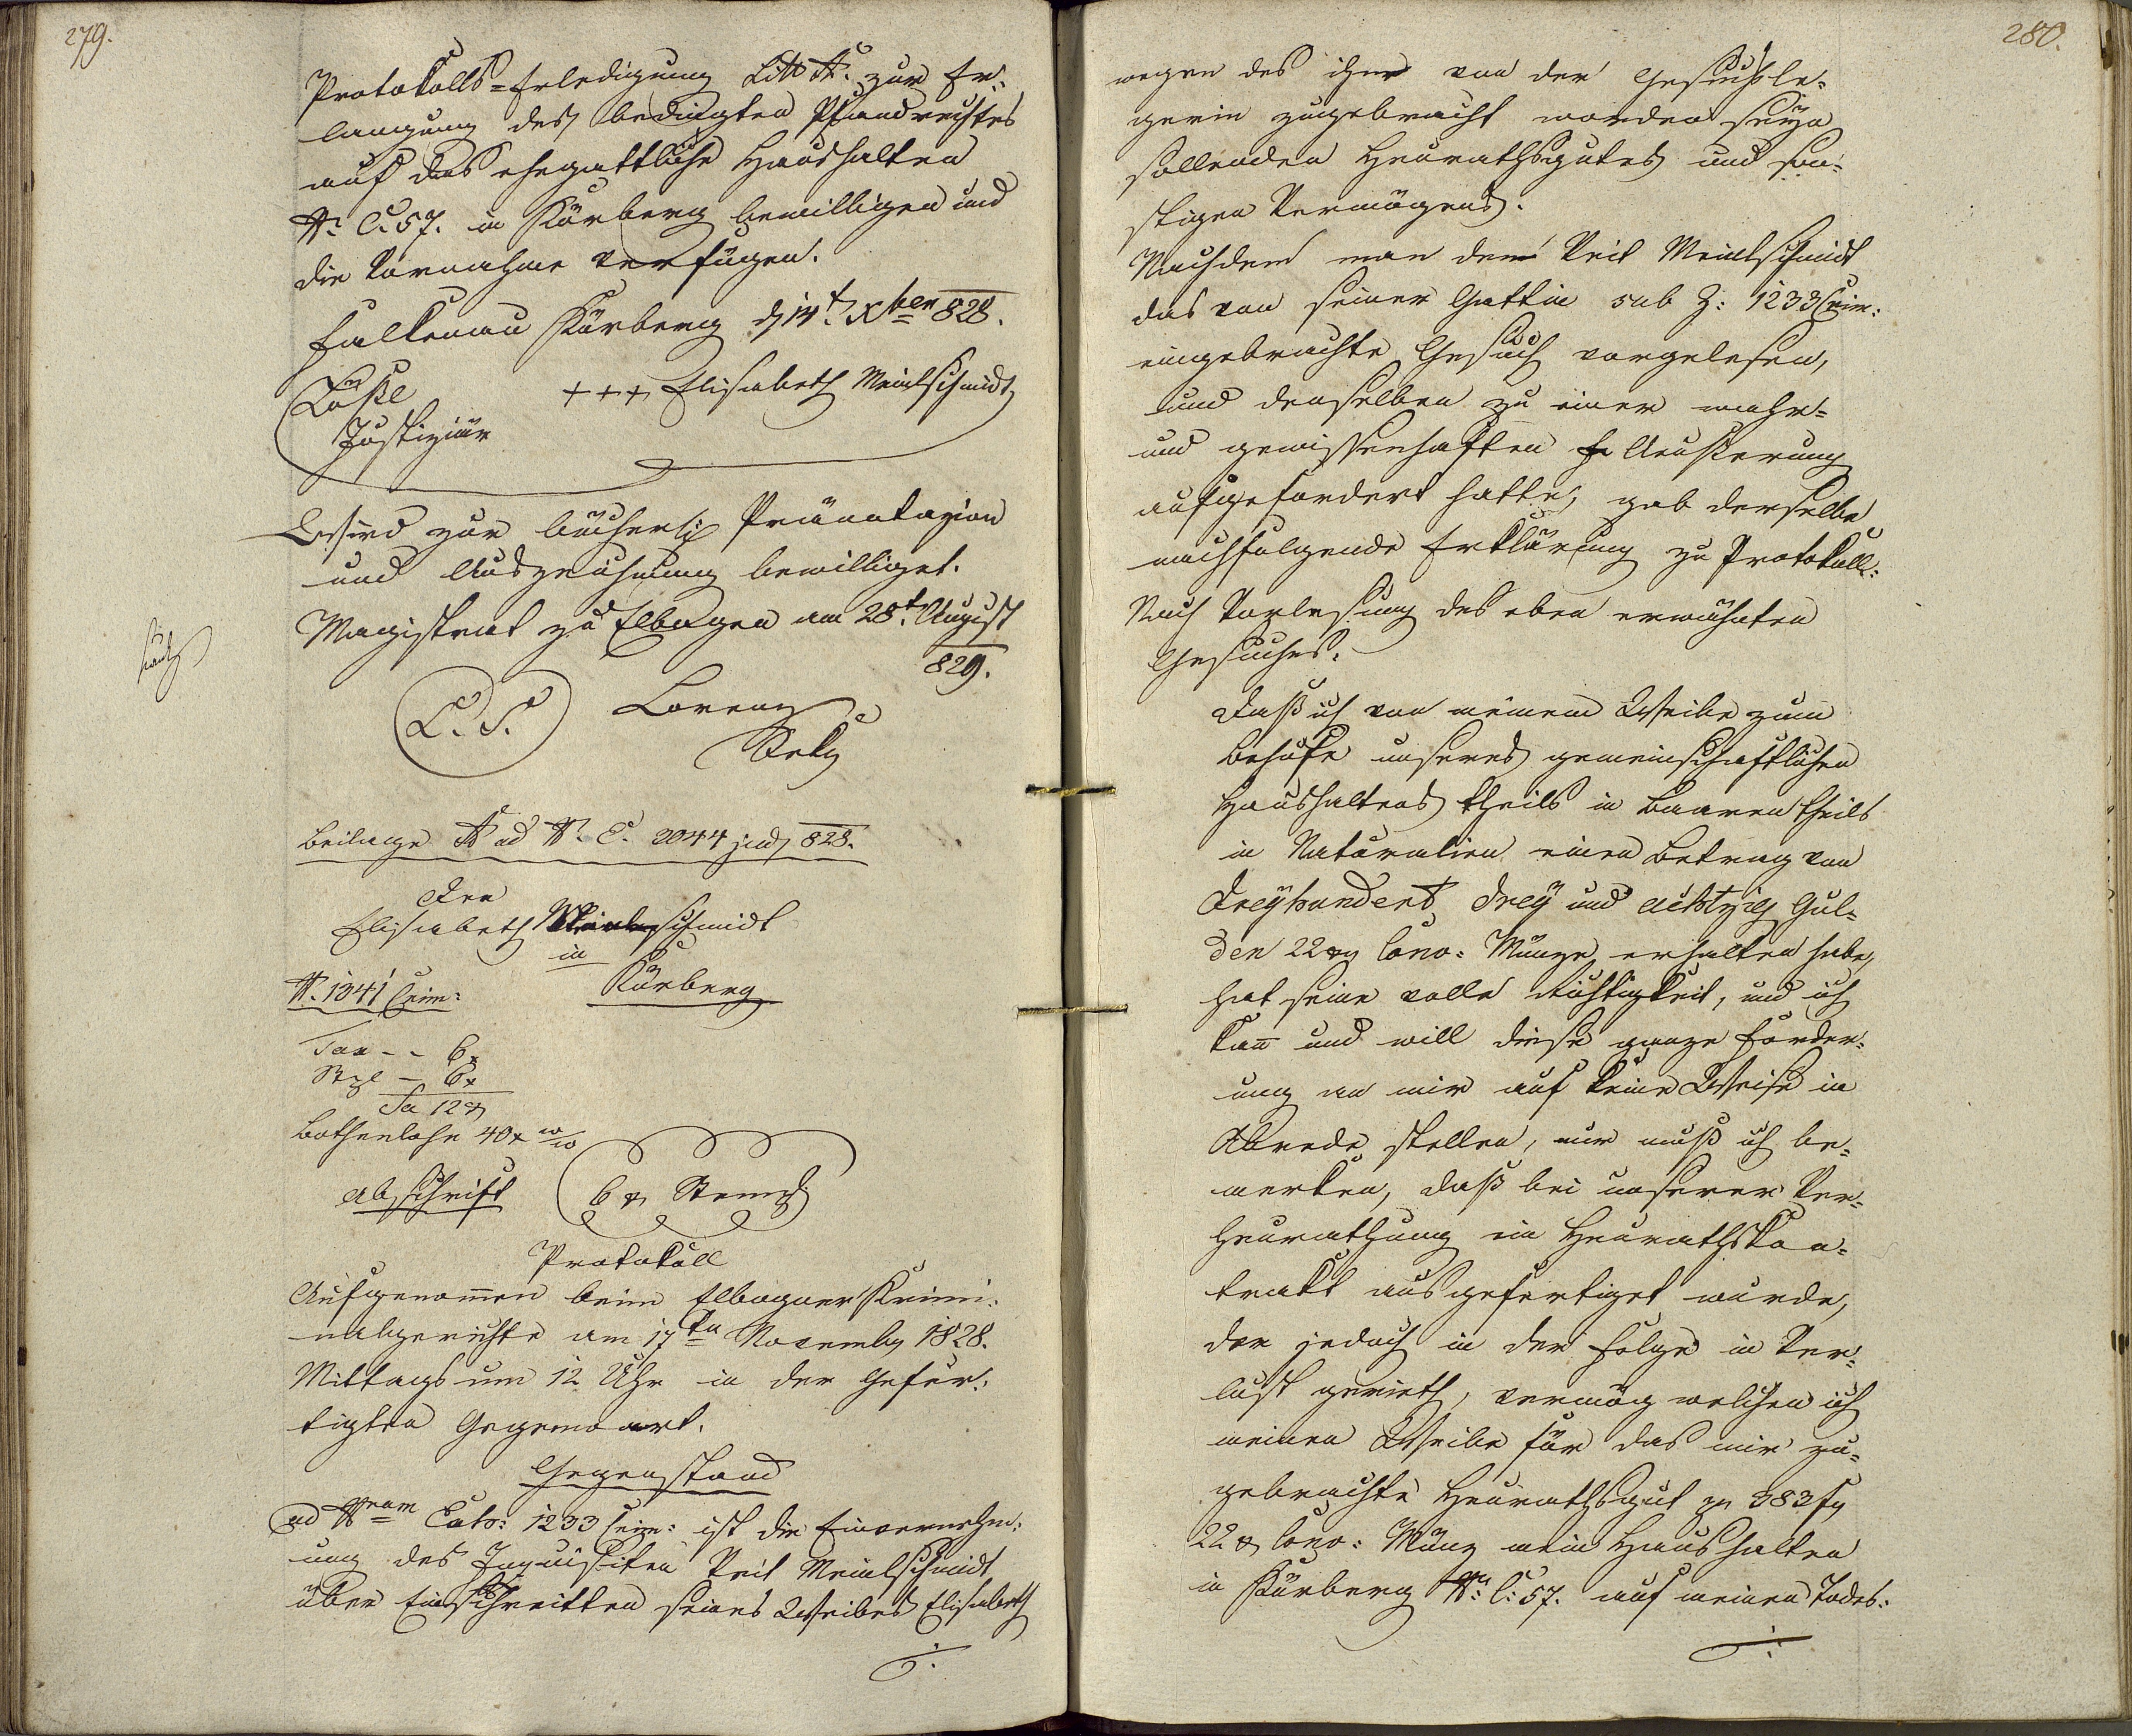 279.
Protokolls=Erledigung Litt A. zur Er=
langung des bedingten Pfandrechtes
auf das ehegattliche Haushalten
N. C. 57. in Kürberg bewilligen und
die Vornahme verfügen.
Falkenau Kürberg d 14t. Xber 828.
+++ Elisabeth Meindlschmidt
Justiziär
Wird zur bücherl: Pränotazion
und Auszeichnung bewilliget.
Magistrat zu Elbogen am 28t. August
829.
L. S.
Lorenz
Beilage A ad N. E. 2044 jud 828.
Der
Elisabeth schmidt
in
N. 1341 Crim:
Kürberg
Tax - - 6x
Stzl - 6x
Sa 12x
Bothenlohn 40x
Abschrift
6x Stempl
Protokoll
Aufgenom̄en beim Elbogner Krimi=
nalgerichte am 17ten Novemb 1828.
Mittags um 12 Uhr in der Gefer=
tigten Gegenwart.
Gegenstand
ad Nram Exto: 1233 Crim: ist die Einvernehm=
ung des Inquisiten Veit Meindlschmidt
über Einschreitten seines Weibes Elisabeth
./.
280.
wegen des ihm von der Gesuchsle=
gerin zugebracht worden seyn
sollenden Heurathsgutes und son=
stigen Vermögens.
Nachdem man dem Veit Meindlschmidt
das von seiner Gattin sub Z: 1233 Crim:
eingebrachte Gesuch vorgelesen,
und denselben zu einer wahr=
und gewissenhaften Aeußerung
aufgefordert hatte, gab derselbe
nachfolgende Erklärung zu Protokoll:
Nach Vorlesung des eben erwähnten
Gesuches.
Daß ich von meinem Weibe zum
Behufe unseres gemeinschaftlichen
Haushaltens theils in Baaren theils
in Naturalien einen Betrag von
Dreyhundert drey und achtzig Gul=
den 22x Conv: Münze erhalten habe,
hat seine volle Richtigkeit, und ich
kan̄ und will diese ganze Forder=
ung an mir auf keine Weise in
Abrede stellen, nur muß ich be=
merken, daß bei unserer Ver=
heurathung ein Heurathskon=
trakt ausgefertiget wurde,
der jedoch in der Folge in Ver=
lust gerieth, vermög welchen ich
meinen Weibe für das mir zu=
gebrachte Heurathsgut zu 383 f
22x Conv: Münz mein Haushalten
in Kürberg N. C: 57. auf meinen Todes=
./.